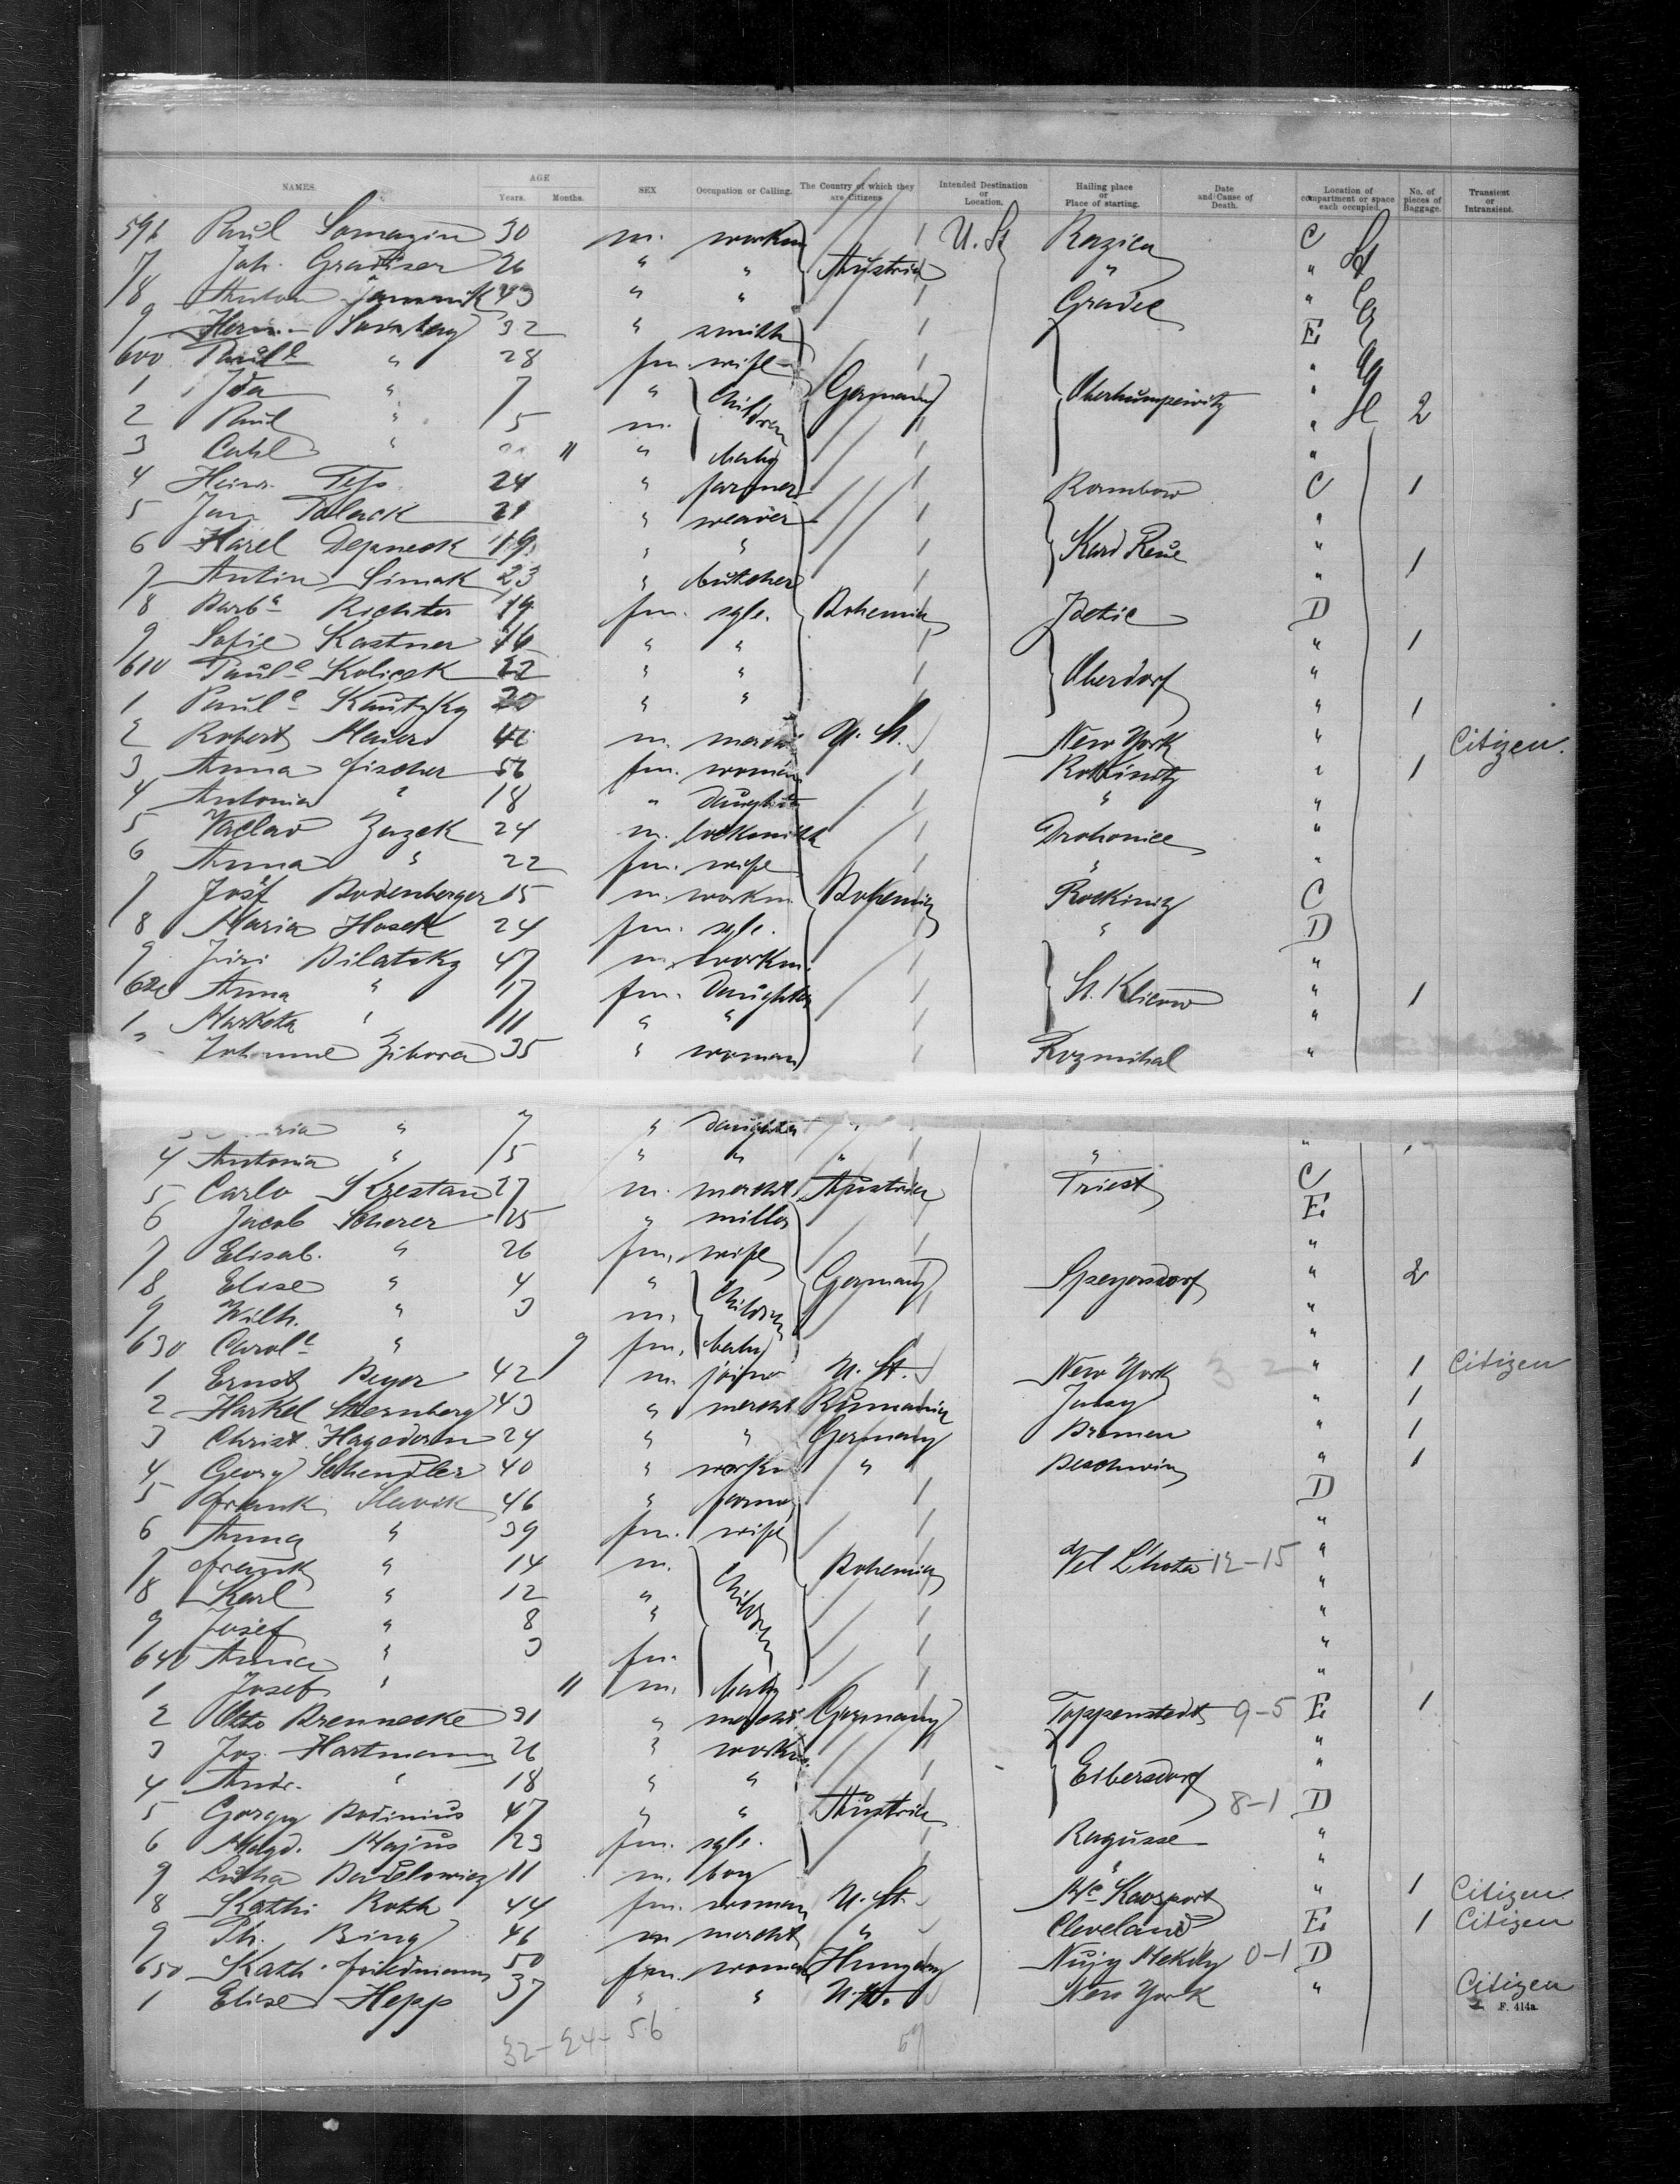 NAMES. AGE Years. Months. SEX Occupation or Calling. The Country of which they are Citizens Intended Destination or Location. Hailing place or Place of starting. Date and Cause of Death. Location of compartment or space each occupied. No. of pieces of Baggage. Transient or Intransient.
596 Paul 30 m. workm U. St Razica C
7 Joh. Gradiser 26 " " Austria " "
8 Anton 43 " " Gradec "
9 Herm. 32 " smith E
600 Paul^e " 28 fm. wife "
1 Ida " 7 " Children Germany "
2 Paul " 5 m. " 2
3 Carl " 11 " baby "
4 Heinr. 24 " farmer Rambow C 1
5 Jan Polack 21 " weaver "
6 Karel 19 " " "
7 Antin Simak 23 " butcher " 1
8 Barb^a Richter 19 fm. sgle. Bohemia D
9 Sofie Kastner 16 " " " 1
610 Paul^e Kolicek 22 " " Oberdorf "
1 Paul^e Kautzky 20 " " " 1
2 Robert Maier m. mercht U. St. New York " Citizen.
3 Anna Fischer 56 fm. woman " 1
4 Antonia " 18 " daughter " "
5 Vaclav Zazek 24 m. locksmith "
6 Anna " 22 fm. wife " "
7 Josf Bodenberger 15 m. workm. Bohemia C
8 Maria Hosek 24 fm. sgle. " D
9 Jiri Bilatsky 47 m. workm. "
620 Anna " 17 fm. daughter " 1
1 Marketa " 11 " " "
Johanne Zibora 35 " woman Rozmihal "
" 7 " daughter "
4 Antonia " 5 " " " " "
5 Carlo Krestan 27 m. mercht Austria Triest C
6 Jacob Scherer 25 " miller E.
7 Elisab. " 26 fm. wife "
8 Elise " 4 " Children Germany Speyersdorf " 2
9 Wilh. " 3 m. "
630 Carol^e " 9 fm. baby "
1 Ernst Beyer 42 m. joiner U. St. New York 3 2 " 1 Citizen
2 Harkel Sternberg 43 " mercht Rumania Jassy " 1
3 Christ. Hagedorn 24 " " Germany Bremen " 1
4 Georg Schendler 40 " workm " " 1
5 Frank Slavik 46 " farmer D
6 Anna " 39 fm. wife "
7 Frank " 14 m. Children Bohemia Vel L'hota 12-15 "
8 Karl " 12 " "
9 Josef " 8 " "
640 Anna " 3 fm. "
1 Josef " 11 m. baby "
2 Otto Brennecke 31 " mercht Germany Toppenstedt 9-5 E 1
3 Jos. Hartmann 26 " workm "
4 Andr. " 18 " " Eibersdorf "
5 Bodinius 47 " " Austria 8-1 D
6 Magd. Majus 23 fm. sgle. Ragusse "
7 11 m. boy " "
8 Kathi Roth 44 fm. woman U. St. " 1 Citizen
9 Ph. Bing 46 m mercht " Cleveland E 1 Citizen
650 Kath. Friedmann 50 fm. woman Hungary 0-1 D
1 Elise Hepp 37 " " U. St. New York " Citizen
F. 414a.
32-24-56